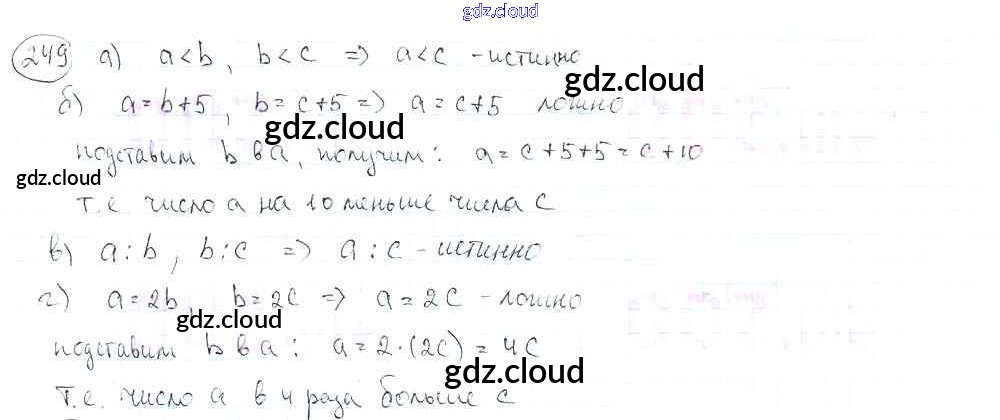 gdz.cloud
249 а) a<b, b<c => a<c - истинно
gdz.cloud
б) a=b+5, b=c+5 => a=c+5 ложно
gdz.cloud
подставим b в a, получим: a=c+5+5=c+10
gdz.cloud
т.е. число a на 10 меньше числа c
в) a:b, b:c => a:c - истинно
г) a=2b, b=2c => a=2c - ложно
gdz.cloud
подставим b в a: a=2·(2c)=4c
gdz.cloud
т.е. число a в 4 раза больше c